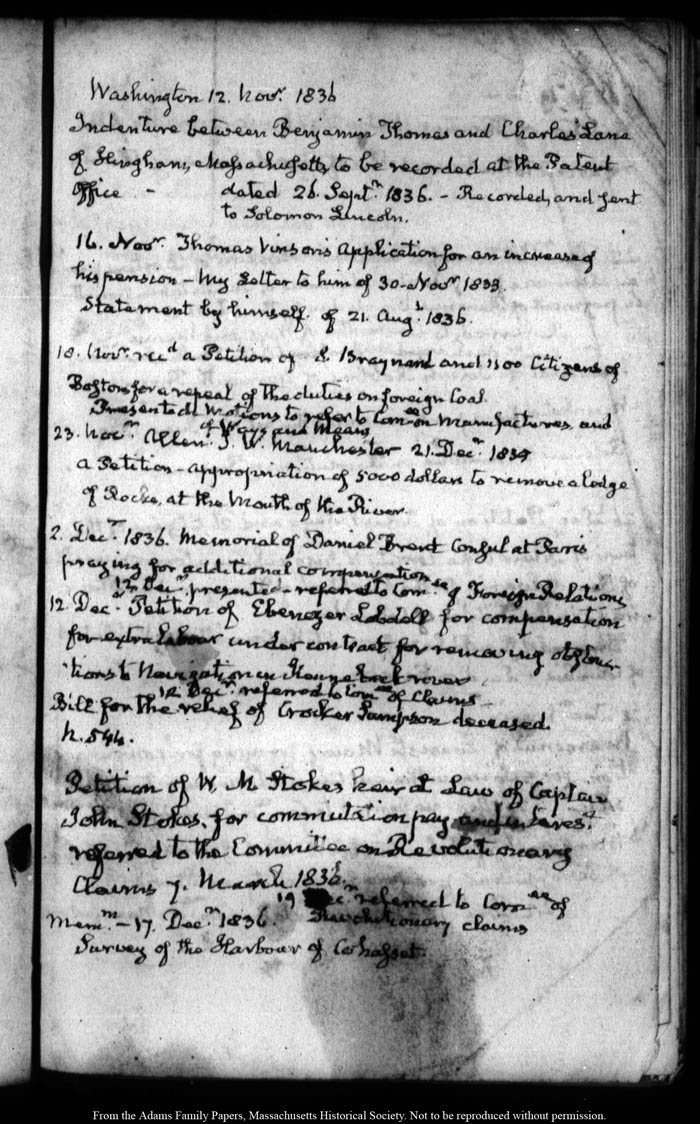 Washington 12. Novr. 1836
Indenture between Benjamin Thomas and Charles Lane
of Hingham, Massachusetts, to be recorded at the Patent
Office - dated 26. Septr. 1836. - Recorded, and sent
to Solomon Lincoln.
16. Novr. Thomas Vinson's Application for an increase of
his pension - My Letter to him of 30. Novr. 1833.
Statement by himself of 21. Augt. 1836.
18. Novr. recd. a Petition of Braynard and 1500 Citizens of
Boston for a repeal of the duties on foreign Coal.
Presented. Motions to refer to Comee on Manufactures, and
of Ways and Means
23. Novr. Allen. J. W. Manchester 21. Decr.
a Petition - appropriation of 5000 dollars to remove a lodge
of Rocks, at the Mouth of the River.
2. Decr. 1836. Memorial of Daniel Brent Consul at Paris
praying for additional compensation
12 Decr. presented - referred to Comee of Foreign Relations
12. Decr. Petition of Ebenezer Lobdell for compensation
for extra labour under contract for removing obstruc-
tions to Navigation in Kennebeck river
12 Decr. referred to Comee of Claims
Bill for the relief of Crocker Sampson deceased.
h. 544.
Petition of W. M Stokes heir at Law of Captain
John Stokes, for commutation pay and interest
referred to the Committee on Revolutionary
Claims 7. March 1836.
19 Decr. referred to Comee of
Revolutionary claims
Memm. - 17. Decr. 1836.
Survey of the Harbour of Cohasset.
From the Adams Family Papers, Massachusetts Historical Society. Not to be reproduced without permission.